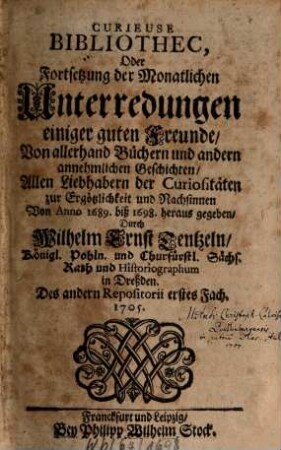 CURIEUSE
BIBLIOTHEC,
Oder
Fortsetzung der Monatlichen
Unterredungen
einiger guten Freunde/
Von allerhand Büchern und andern
annehmlichen Geschichten/
Allen Liebhabern der Curiositäten
zur Ergötzlichkeit und Nachsinnen
Von Anno 1689. biß 1698. heraus gegeben/
Durch
Wilhelm Ernst Tentzeln/
Königl. Pohln. und Churfürstl. Sächs.
Rath und Historiographum
in Dreßden.
Des andern Repositorii erstes Fach.
1705.
Franckfurt und Leipzig/
Bey Philipp Wilhelm Stock.